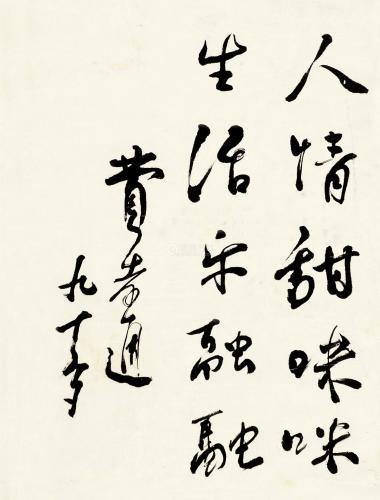 人情甜咪咪
生活乐融融
費孝通
九十